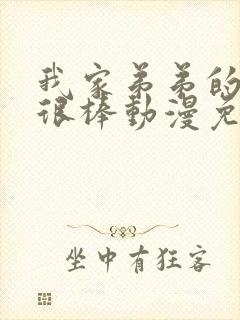 我家弟弟的
很棒動漫免
坐中有狂客